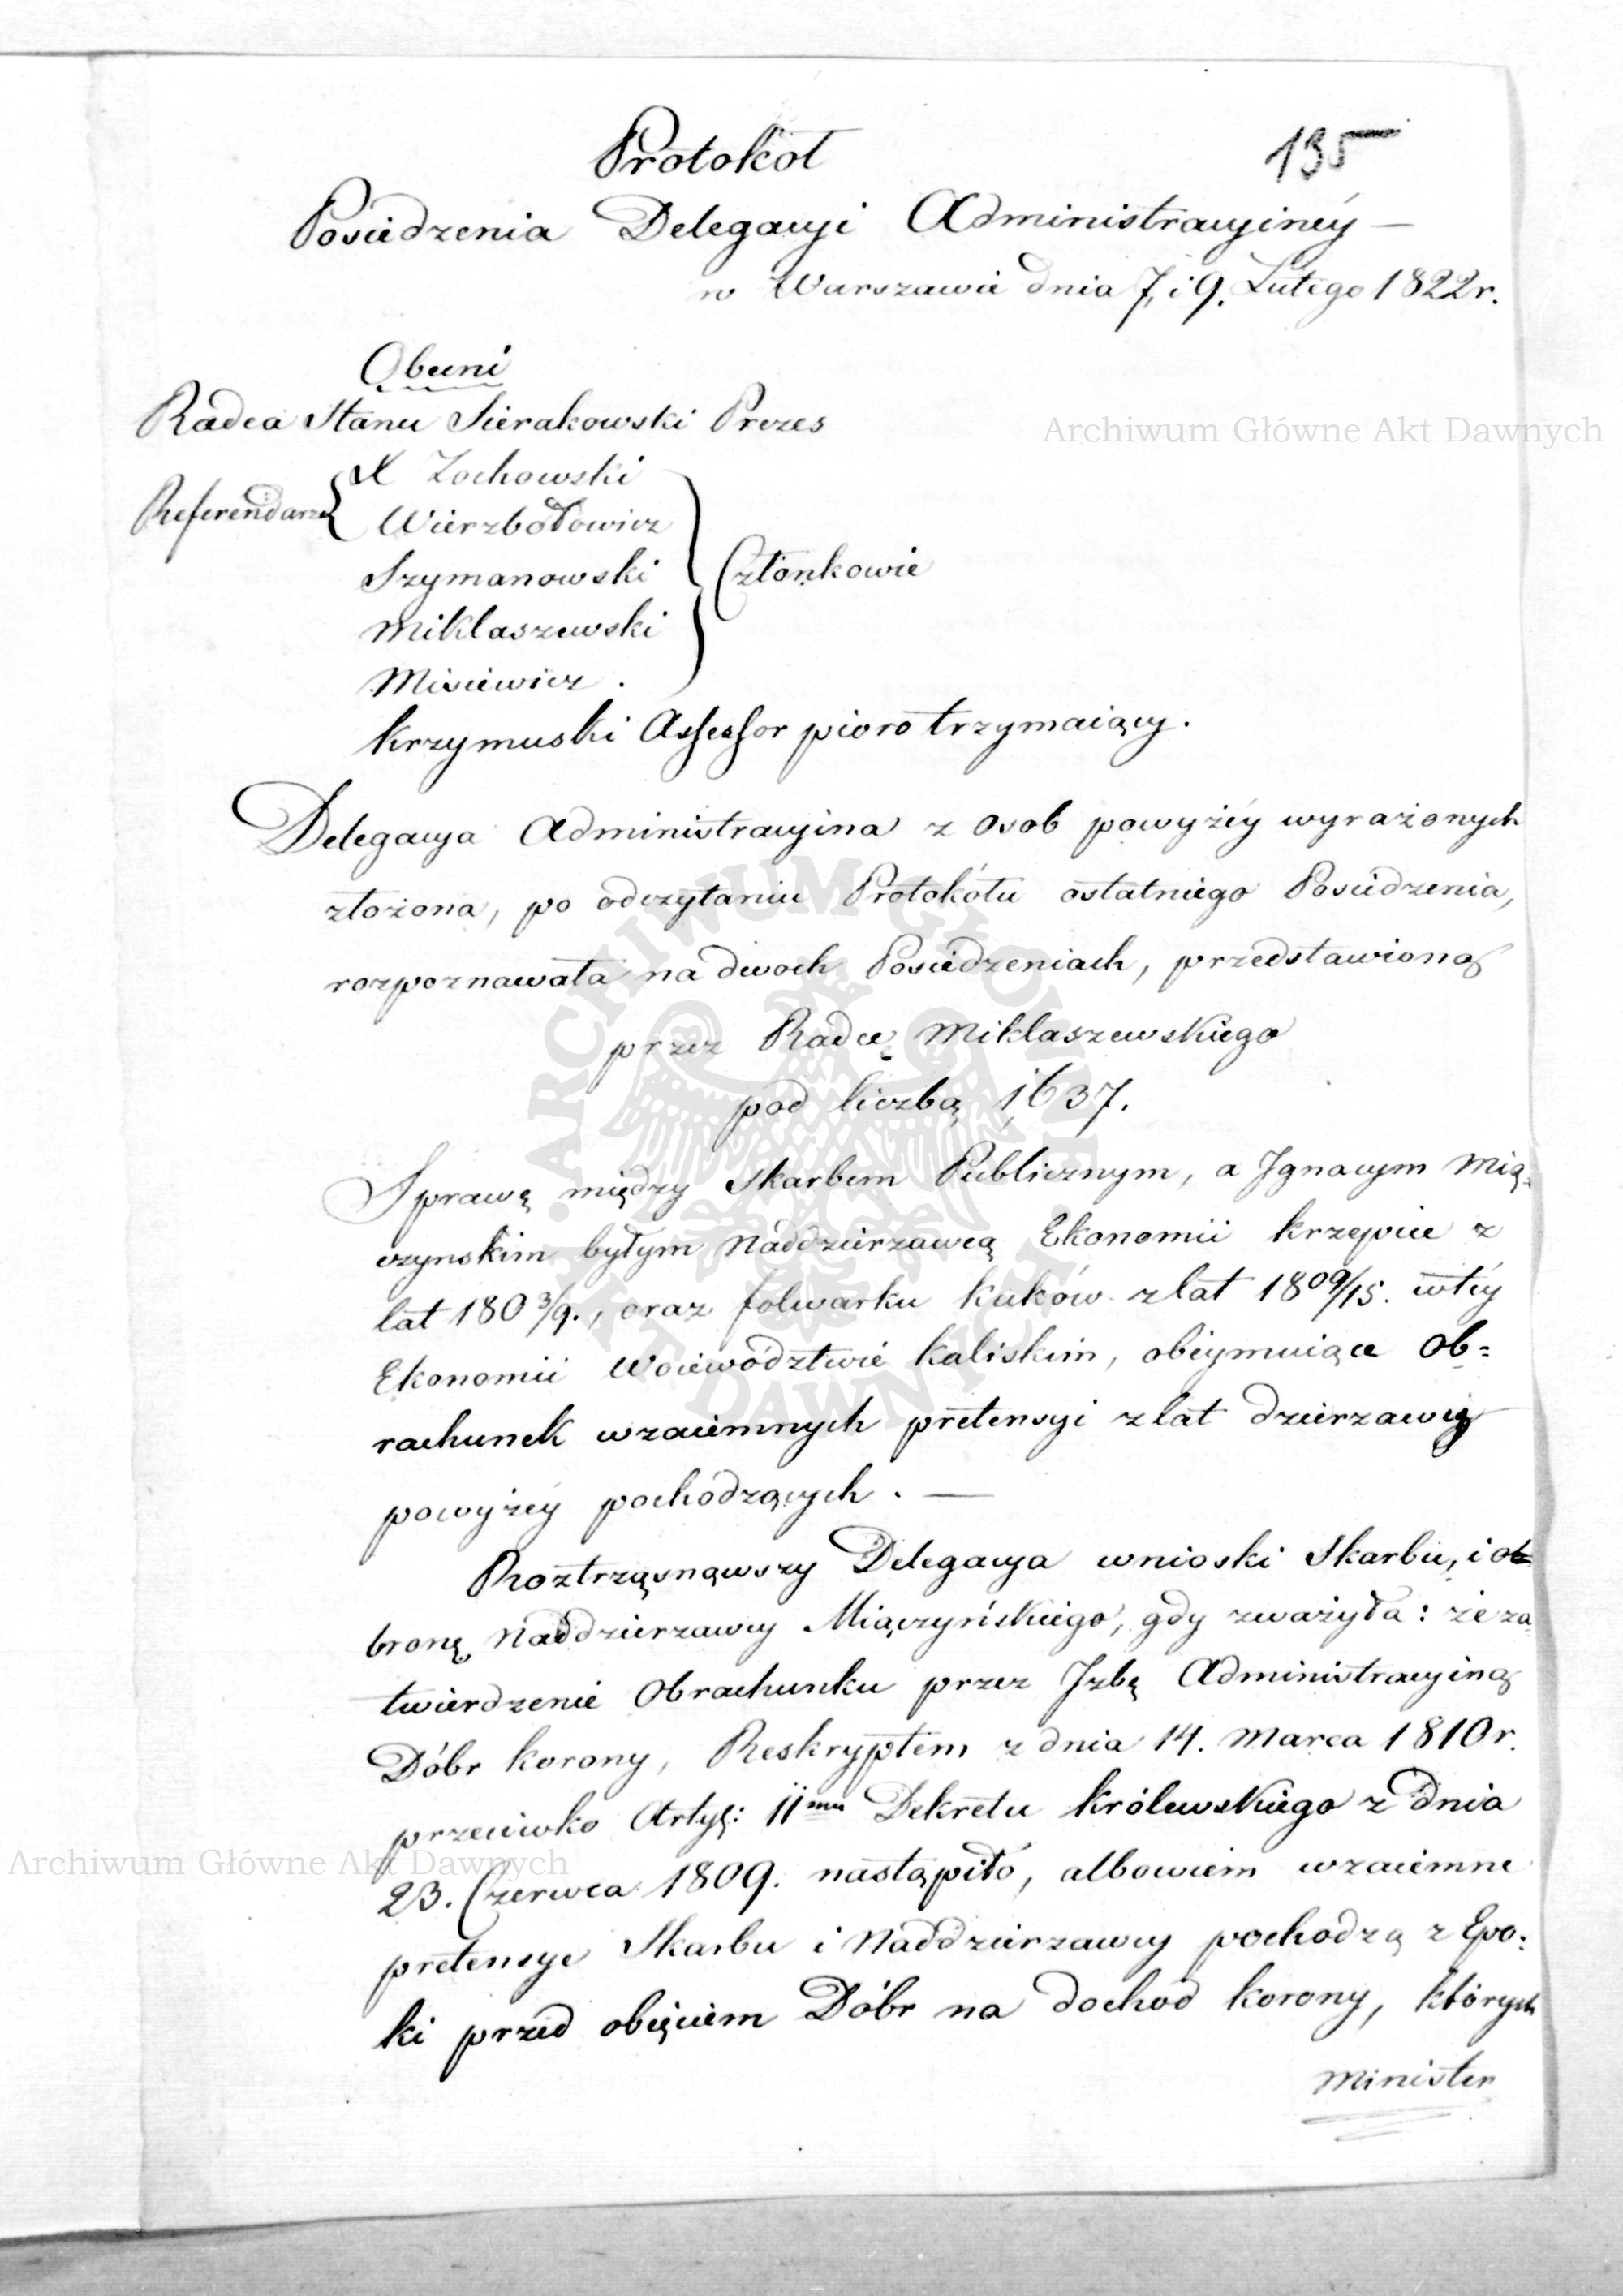 135
Protokół
Posiedzenia Delegacyi Administracyinéy —
w Warszawie dnia 7. i 9. Lutego 1822 r.
Obecni
Radca Stanu Sierakowski Prezes
Referendarze { X Zochowski
Wierzbołowicz
Szymanowski } Członkowie
Miklaszewski
Misiewicz .
Krzymuski Assessor pioro trzymaiący.
Delegacya Administracyina z osob powyżéy wyrażonych
złożona, po odczytaniu Protokółu ostatniego Posiedzenia,
rozpoznawała na dwoch Posiedzeniach, przedstawioną
przez Radcę Miklaszewskiego
pod liczbą 1637.
Sprawę między Skarbem Publicznym, a Ignacym Mią-
czynskim byłym Naddzierzawcą Ekonomii Krzepice z
lat 180 3/9., oraz folwarku Kuków z lat 18 09/15. w téy
Ekonomii Woiewództwie Kaliskim, obeymuiące Ob=
rachunek wzaiemnych pretensyi z lat dzierzawy
powyżéy pochodzących . —
Roztrząsnąwszy Delegacya wnioski Skarbu, i ob=
bronę Naddzierzawcy Miączyńskiego, gdy zważyła: że za-
twierdzenie Obrachunku przez Izbę Administracyiną
Dóbr Korony, Reskryptem z dnia 14. Marca 1810 r.
przeciwko Artyę: 11mu Dekretu Królewskiego z dnia
23. Czerwca 1809. nastąpiło, albowiem wzaiemne
pretensye Skarbu i Naddzierzawcy pochodzą z Epo=
ki przed obięciem Dóbr na dochod Korony, których
Minister
Archiwum Główne Akt Dawnych
ARCHIWUM GŁÓWNE AKT DAWNYCH
Archiwum Główne Akt Dawnych